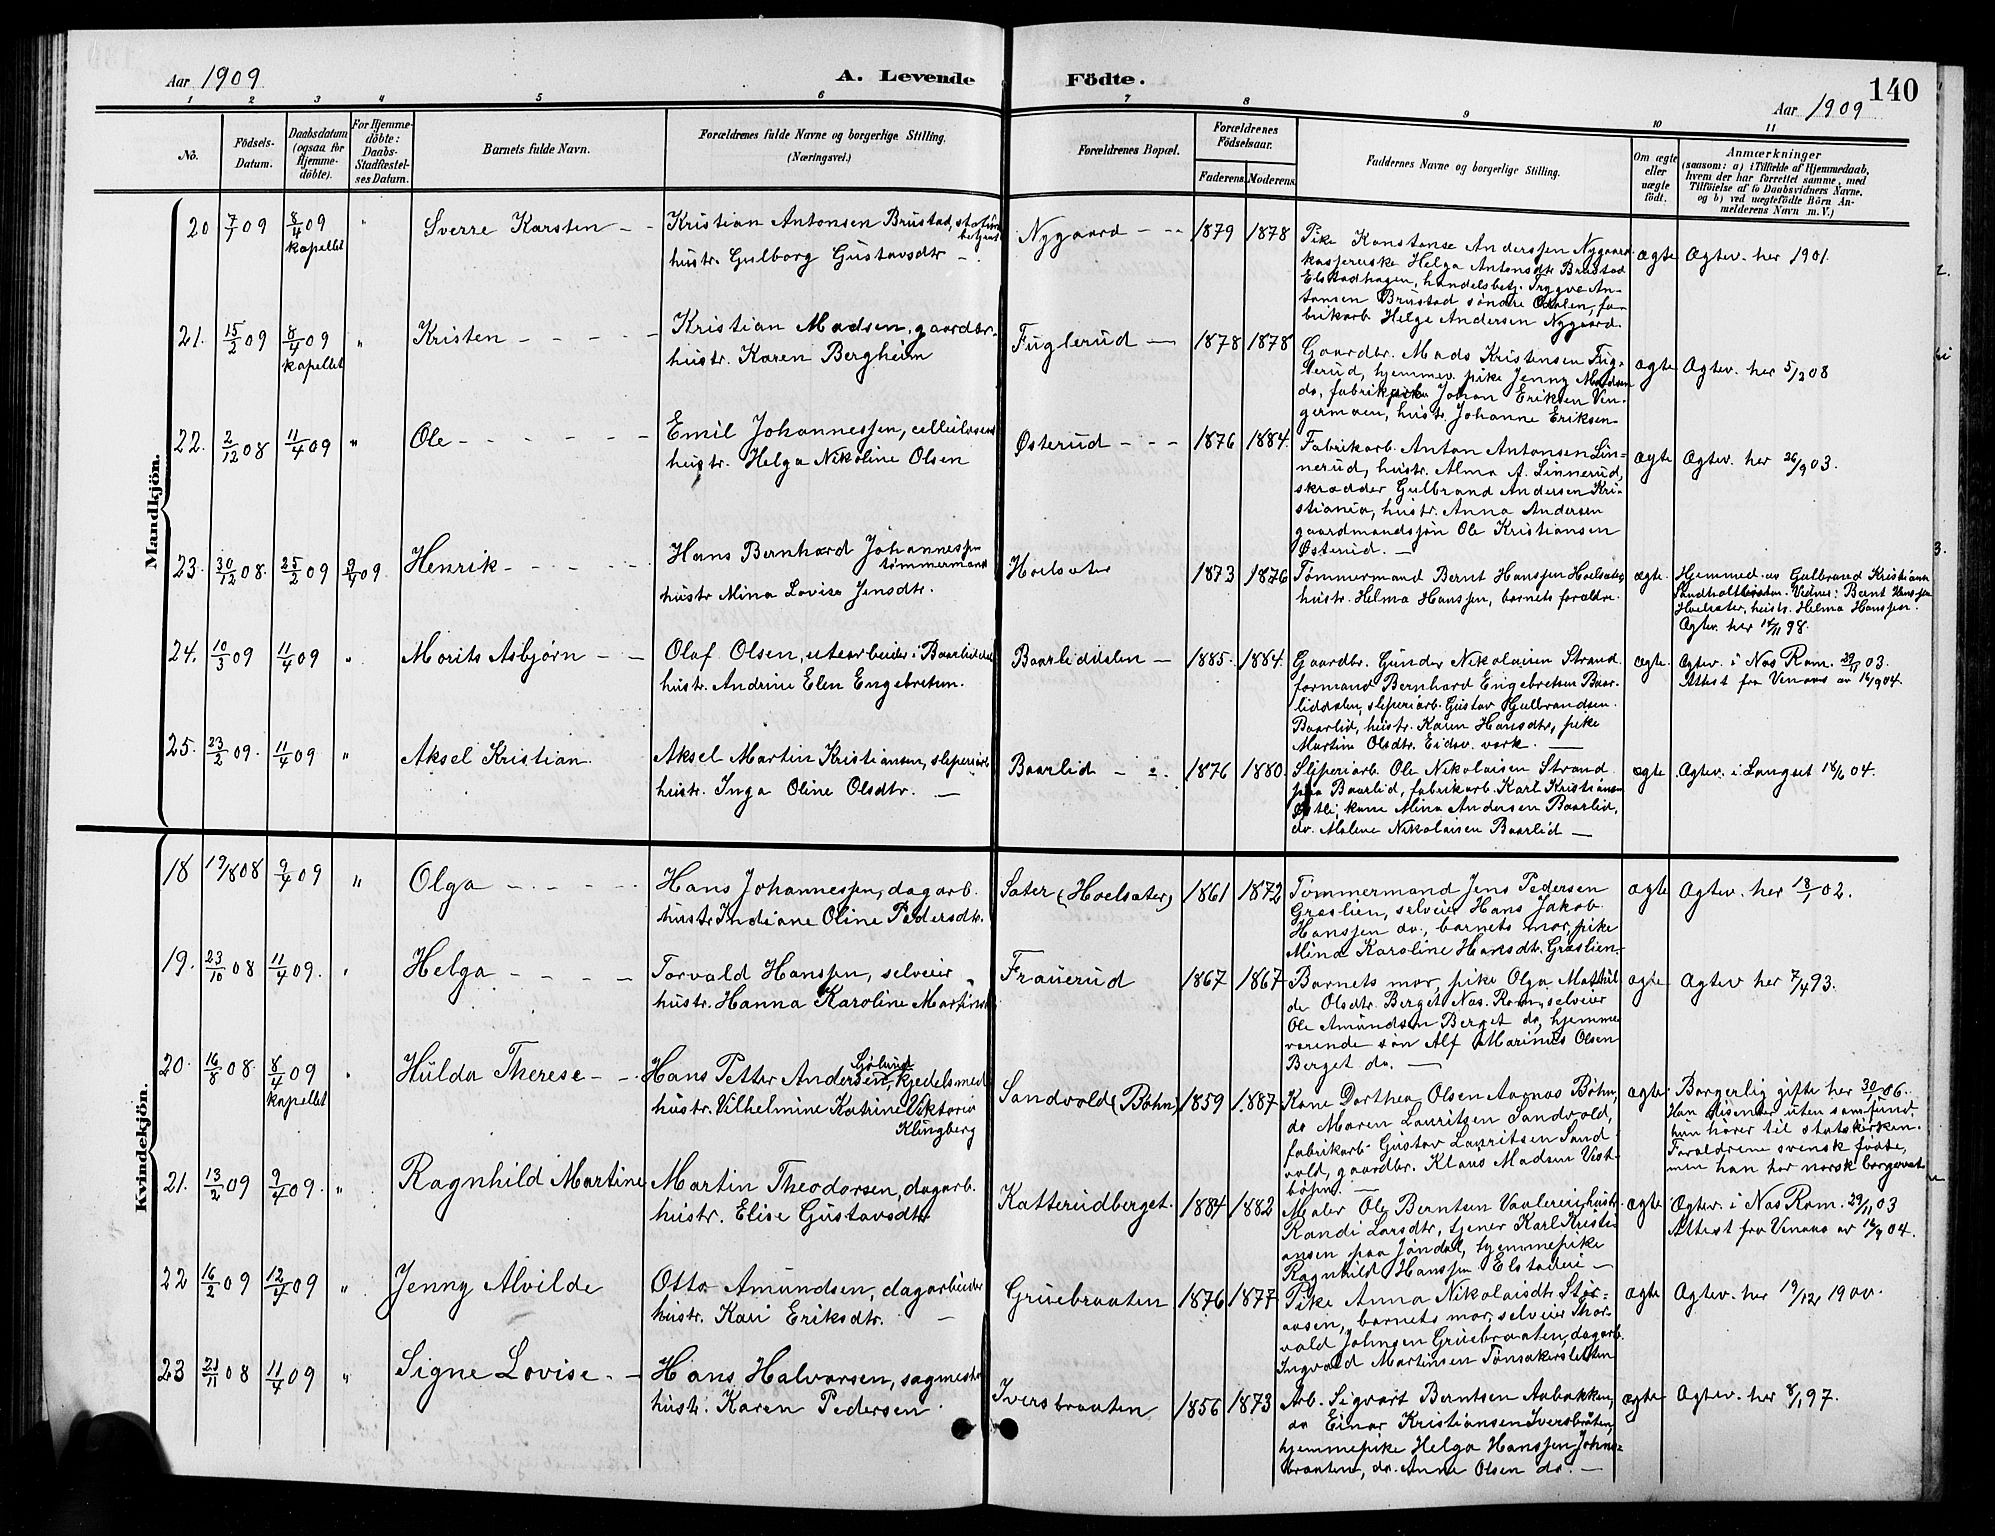 Aar 1909
A. Levende Födte.
140
Aar 1909
1 2 3 4 5 6 7 8 9 10 11
Nò.
Födsels-Datum.
Daabsdatum (ogsaa for Hjemme-döbte).
For Hjemme-döbte: Daabs-Stadfæstel-ses Datum.
Barnets fulde Navn.
Forældrenes fulde Navne og borgerlige Stilling. (Næringsvei.)
Forældrenes Bopæl.
Forældrenes Födselsaar.
Faderens. Moderens.
Faddernes Navne og borgerlige Stilling.
Om ægte eller uægte födt.
Anmærkninger
(saasom: a) i Tilfælde af Hjemmedaab,
hvem der har forrettet samme, med
Tilföielse af to Daabsvidners Navne.
og b) ved uægtefödte Börn An-
melderens Navn m. V.)
Mandkjön.
20 7/1 09 8/4 09 kapellet " Sverre Karsten
Kristian Antonsen Brustad,
hustr. Gulborg Gustavsdtr
Nygaard 1879 1878
Pike Konstanse Anderssen Nygaard
Helga Antonsdtr Brustad
Elstadhagen, handelsbetj. Trygve An-
tonsen Brustad søndre Odalen, fa-
brikarb. Helge Andersen Nygaard.
ægte Ægtev. her 1901.
21. 15/2 09 8/4 09 kapellet " Kristen
Kristian Madsen, gaardbr.
hustr. Karen Bergheim
Fuglerud 1878 1878
Gaardbr. Mads Kristensen Fug-
lerud, hjemmev. pike Jenny Madsen
do, Johan Eriksen Ven-
germoen, hustr. Johanne Eriksen
ægte Ægtev. her 5/2 08
22. 2/12 08 11/4 09 " Ole
Emil Johannessen,
hustr. Helga Nikoline Olsen
Østerud 1876 1884.
Fabrikarb. Anton Antonsen Lin-
nerud, hustr. Alma A. Linnerud,
skrædder Gulbrand Andersen Kri-
stiania, hustr. Anna Andersen
gaardmandssøn Ole Kristiansen
Østerud.
ægte Ægtev. her 26/9 03.
23. 30/12 08. 25/2 09 9/4 09 Henrik
Hans Bernhard Johannessen
tømmermand
hustr Mina Lovise Jensdtr.
Hoelsæter 1873 1876
Tømmermand Bernt Hanssen Hoelsæter,
hustr. Helma Hanssen, barnets forældre.
ægte. Hjemmed. av Gulbrand Kristiansen
Vidner: Bernt Hanssen
Hoelsæter, hustr. Helma Hanssen.
Ægtev. her 14/11 98.
24. 10/3 09 11/4 09 " Morits Asbjørn
Olaf Olsen, utearbeider i Baarliddalen
hustr. Andrine Elen Engebretsen.
Baarliddalen 1885. 1884.
Gaardbr. Gunder Nikolaisen Strand
formand Bernhard Engebretsen Baar-
liddalen, sliperiarb. Gustav Gulbrandsen
Baarlid, hustr. Karen Hansdtr, pike
Martine Olsdtr. Eidsv. værk.
ægte. Ægtev. i Nes Rom. 29/11 03.
Attest fra Venaas av 16/9 04.
25. 23/2 09. 11/4 09 " Aksel Kristian.
Aksel Martin Kristiansen, sliperiarb.
hustr. Inga Oline Olsdtr.
Baarlid 1876 1880.
Sliperiarb. Ole Nikolaisen Strand
paa Baarlid, fabrikarb. Karl Kristiansen
Østli, kone Mina Andersen Baarlid,
do. Malene Nikolaisen Baarlid
ægte Ægtev. i Langset 18/6 04.
Kvindekjön.
18 19/8 08 9/4 09 " Olga
Hans Johannessen, dagarb.
hustr Indiane Oline Pedersdtr.
Sæter (Hoelsæter) 1861 1872
Tømmermand Jens Pedersen
Græslien, selveier Hans Jakob
Hanssen do., barnets mor, pike
Mina Karoline Hansdtr. Græslien
ægte Ægtev. her 18/1 02.
19. 23/10 08 11/4 09. " Helga
Torvald Hanssen, selveier
hustr. Hanna Karoline
Frauerud 1867 1867
Barnets mor, pike Olga Mathil-
de Olsdtr. Berget Nes. Rom, selveier
Ole Amundsen Berget do, hjemme
værende søn Alf Marinus Olsen
Berget do.
ægte Ægtev her 7/4 93.
20. 16/8 08. 8/4 09 kapellet " Hulda Therese
Sjölund
Hans Petter Andersen, kjedelsmed
hustr. Vilhelmine Katrine Viktoria
Klingberg
Sandvold (Bøhn) 1859 1887
Kone Dorthea Olsen Aarnæs Bøhn,
do Maren Lauritsen Sandvold,
fabrikarb. Gustav Lauritsen Sand
vold, gaardbr. Klaus Madsen Vest-
bøhn.
ægte Borgerlig gifte her 30/1 06.
Han disenter uten samfund
hun hører til statskirken.
Forældrene svensk fødte,
men han har norsk borgerret
21. 13/2 09 9/4 09. " Ragnhild Martine
Martin Theodorsen, dagarb.
hustr. Elise Gustavsdtr
Katterudberget. 1884 1882
Maler Ole Berntsen hustr.
Randi Larsdtr, tjener Karl Kristi
ansen paa Jøndal, hjemmepike
Ragnhild Hanssen
ægte Ægtev. i Nes Rom. 29/11 03
Attest fra Venaas av 16/9 04.
22 16/2 09 12/4 09 " Jenny Alvilde
Otto Amundsen, dagarbeider
hustr. Kari Eriksdtr.
Gruebraaten 1876 1877
Pike Anna Nikolaisdtr Stor-
aasen, barnets mor, selveier Thor-
vald Johnsen Gruebraaten, dagarb.
Ingvald Martinsen Tønsakersletten
ægte Ægtev. her 19/12 1900.
23 21/11 08 11/4 09 " Signe Lovise
Hans Halvorsen, sagmester
hustr. Karen Pedersen.
Iversbraaten 1856 1873
Arb. Sigvart Berntsen Aabakken,
do Einar Kristiansen Iversbråten,
hjemmepike Helga Hanssen Johns-
braaten, do. Anne Olsen do.
ægte Ægtev. her 8/1 97.